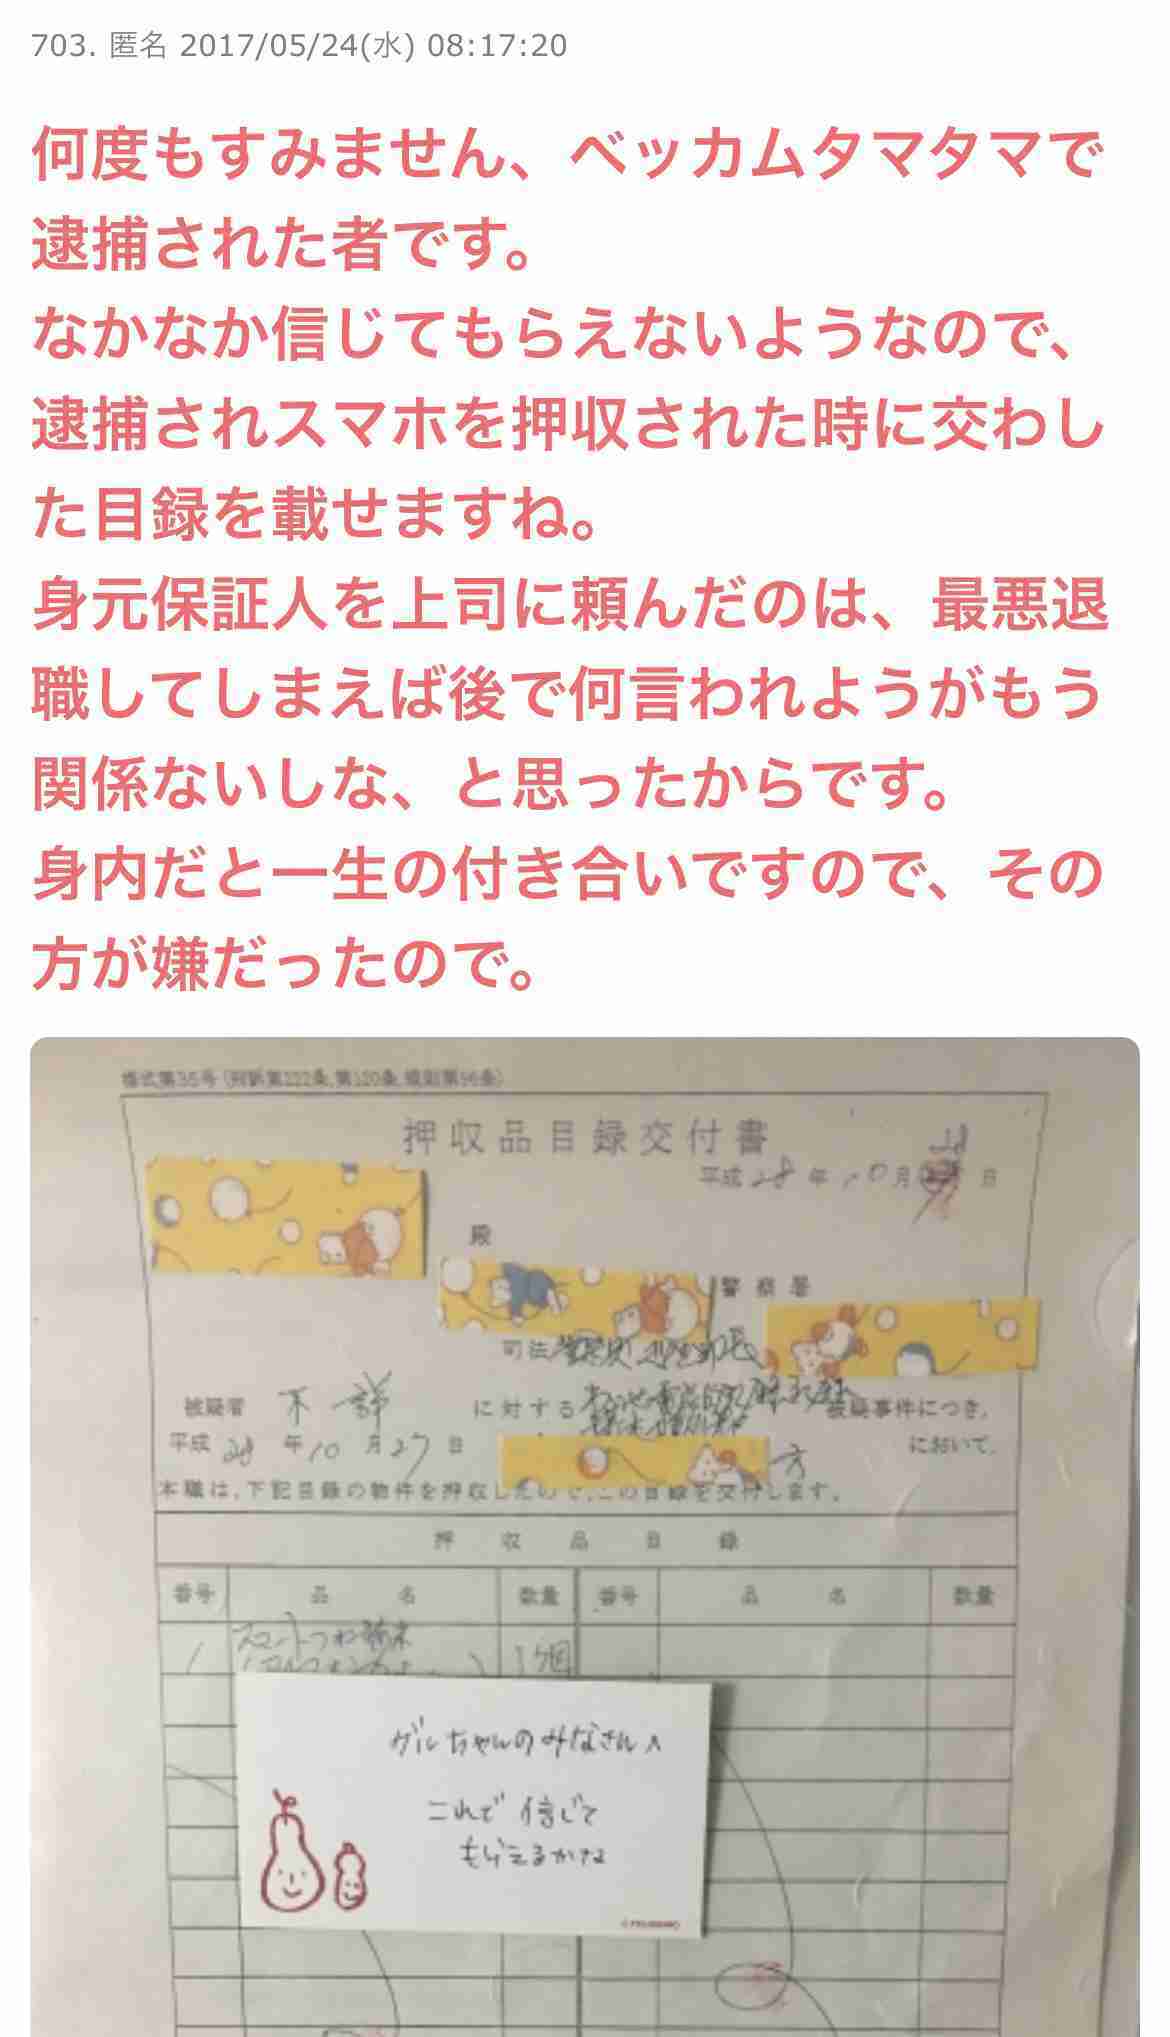 703. 匿名 2017/05/24(水) 08:17:20
何度もすみません、ベッカムタマタマで
逮捕された者です。
なかなか信じてもらえないようなので、
逮捕されスマホを押収された時に交わし
た目録を載せますね。
身元保証人を上司に頼んだのは、最悪退
職してしまえば後で何言われようがもう
関係ないしな、と思ったからです。
身内だと一生の付き合いですので、その
方が嫌だったので。
様式第35号(刑訴第222条,第120条,規則第96条)
押収品目録交付書
平成 28 年 10 月 日
殿
警察署
司法
被疑者 不詳 に対する 被疑事件につき,
平成 28 年 10 月 27 日 方 において,
本職は,下記目録の物件を押収したので,この目録を交付します。
押収品目録
番号 品名 数量 番号 品名 数量
1 スマートフォン端末 1個
ガルちゃんのみなさんへ
これで信じて
もらえるかな